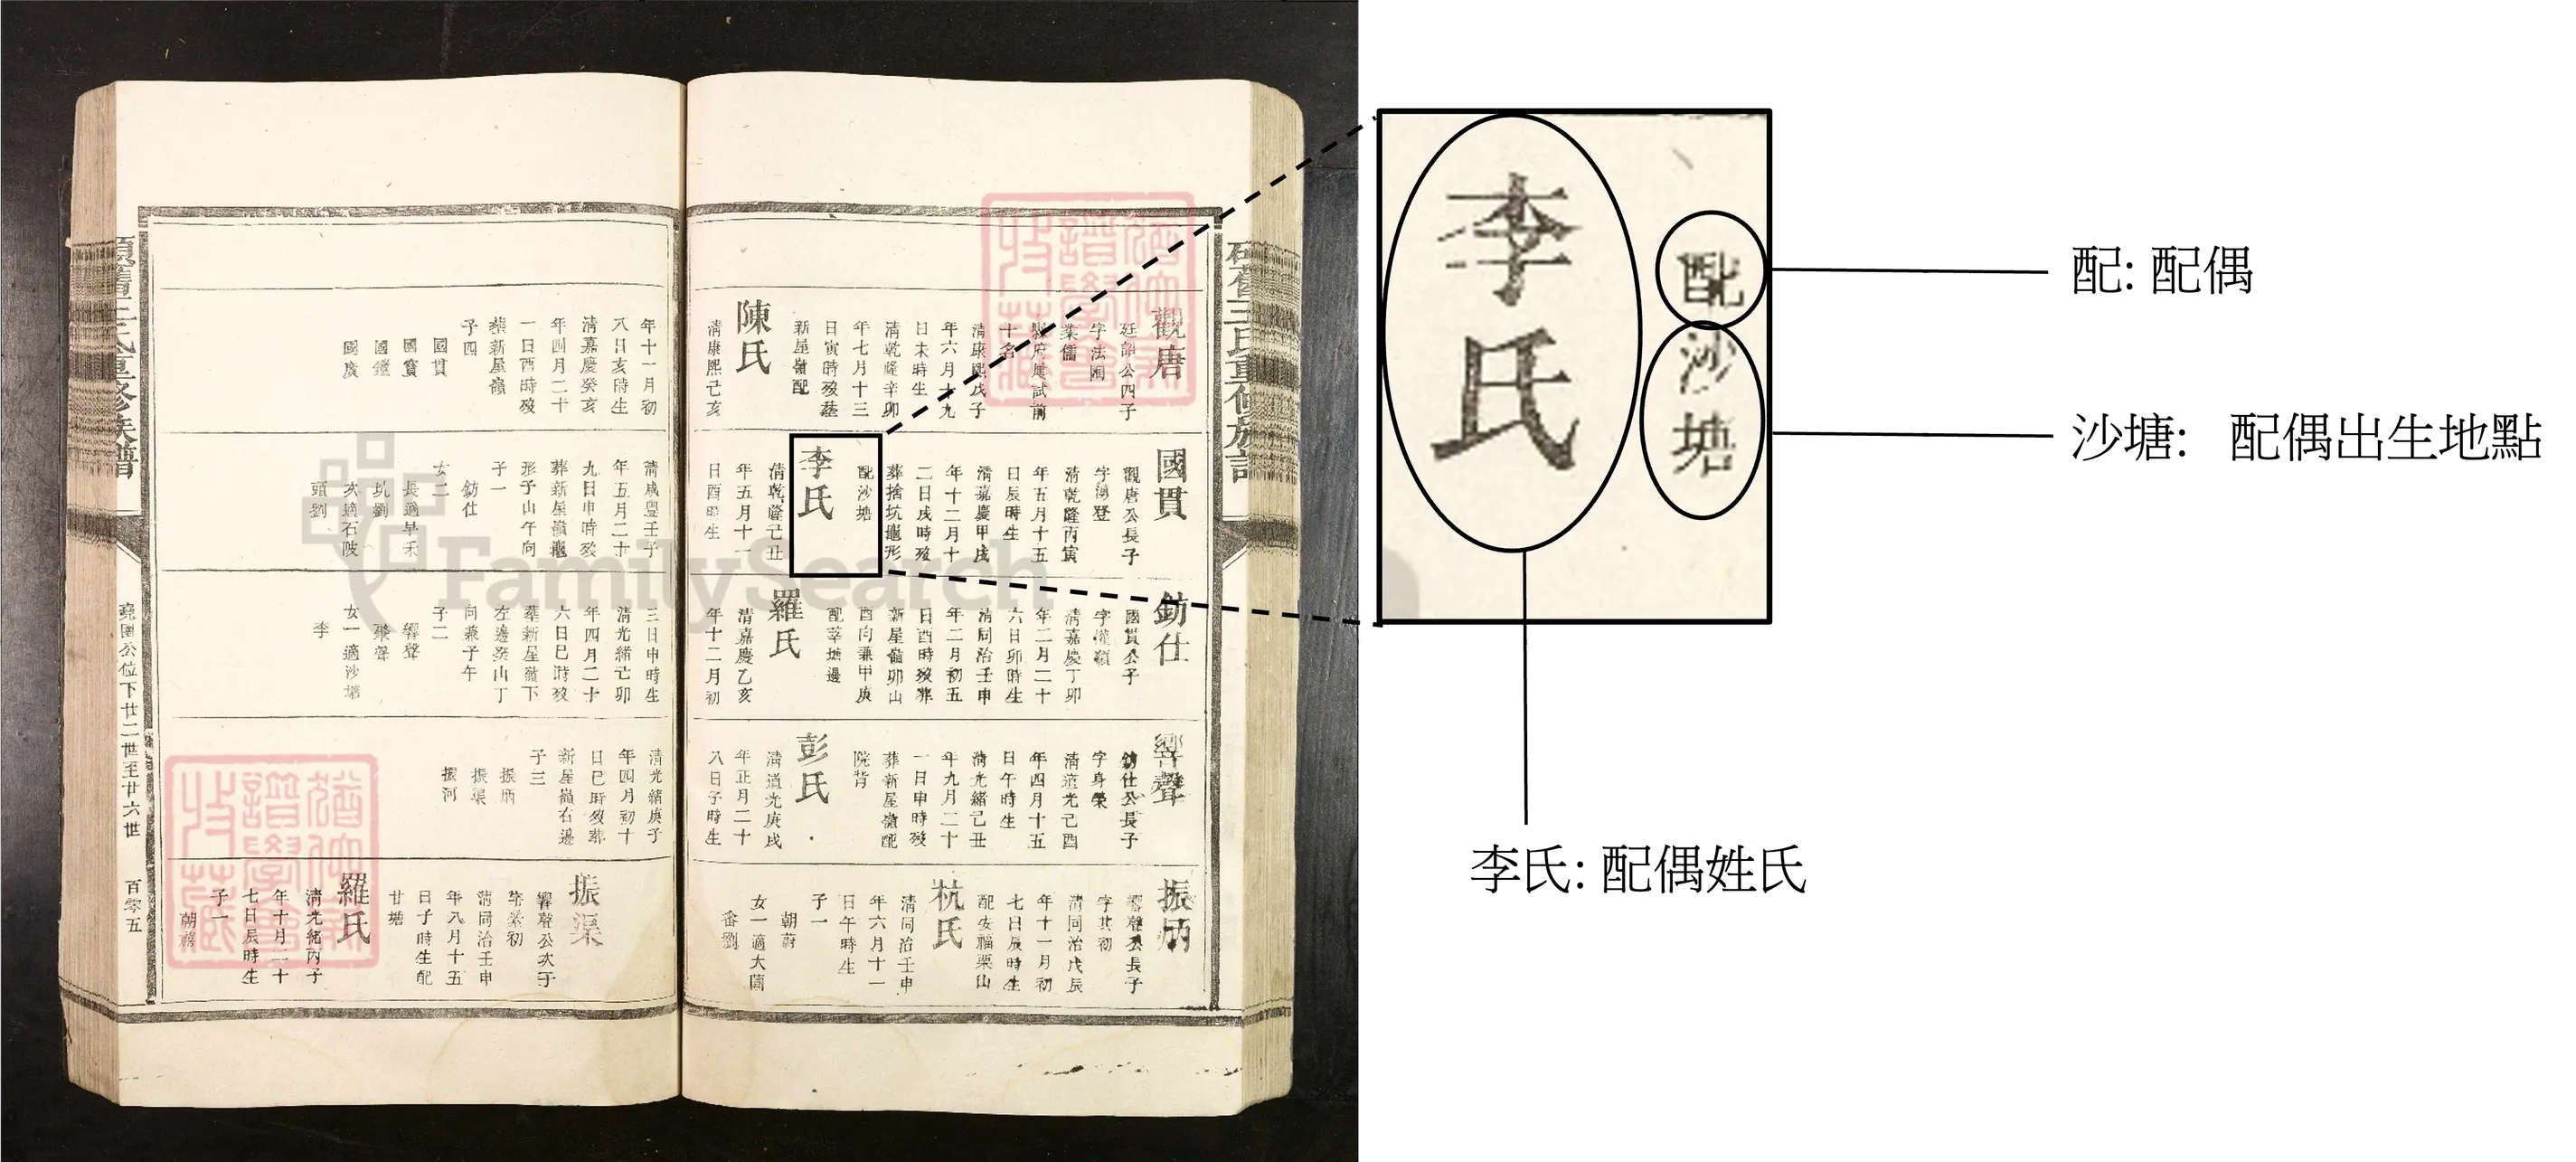 觀唐
廷韶公四子
字法園
業儒
縣府屢試前
十名
清康熙戊子
年六月十九
日未時生
清乾隆辛卯
年七月十三
日寅時歿葬
新屋嶺配
陳氏
清康熙己亥
國貫
觀唐公長子
清乾隆丙寅
年五月十五
日辰時生
清嘉慶甲戌
年十二月十
二日戌時歿
葬捨坑龜形
配沙塘
李氏
清乾隆己丑
年五月十一
日酉時生
鈁仕
國貫公子
清嘉慶丁卯
年二月二十
六日卯時生
清同治壬申
年二月初五
日酉時歿葬
新屋嶺卯山
酉向兼甲庚
配莘塘邊
羅氏
清嘉慶乙亥
年十二月初
響聲
鈁仕公長子
字身榮
清道光己酉
年四月十五
日午時生
清光緒己丑
年九月二十
一日申時歿
葬新屋嶺配
院背
彭氏
清道光庚戌
年正月二十
八日子時生
振炳
響聲公長子
字其初
清同治戊辰
年十一月初
七日辰時生
配安福栗山
杭氏
清同治壬申
年六月十一
日午時生
子一
朝蔚
女一適大園
畲劉
年十一月初
八日亥時生
清嘉慶癸亥
年四月二十
一日酉時歿
葬新屋嶺
子四
國貫
國寶
國鐘
國廣
清咸豐壬子
年五月二十
九日申時歿
葬新屋嶺龜
形子山午向
子一
鈁仕
女二
長適旱禾
坑劉
次適石陂
頭劉
三日申時生
清光緒己卯
年四月二十
六日巳時歿
葬新屋嶺下
左邊癸山丁
向兼子午
子二
響聲
聚聲
女一適沙塘
李
清光緒庚子
年四月初十
日巳時歿葬
新屋嶺右邊
子三
振炳
振渠
振河
振渠
響聲公次子
清同治壬申
年八月十五
日子時生配
甘塘
羅氏
清光緒丙子
年十月二十
七日辰時生
子一
朝禧
堯園公位下廿二世至廿六世
百零五
FamilySearch
李氏
配沙塘
配: 配偶
沙塘: 配偶出生地點
李氏: 配偶姓氏